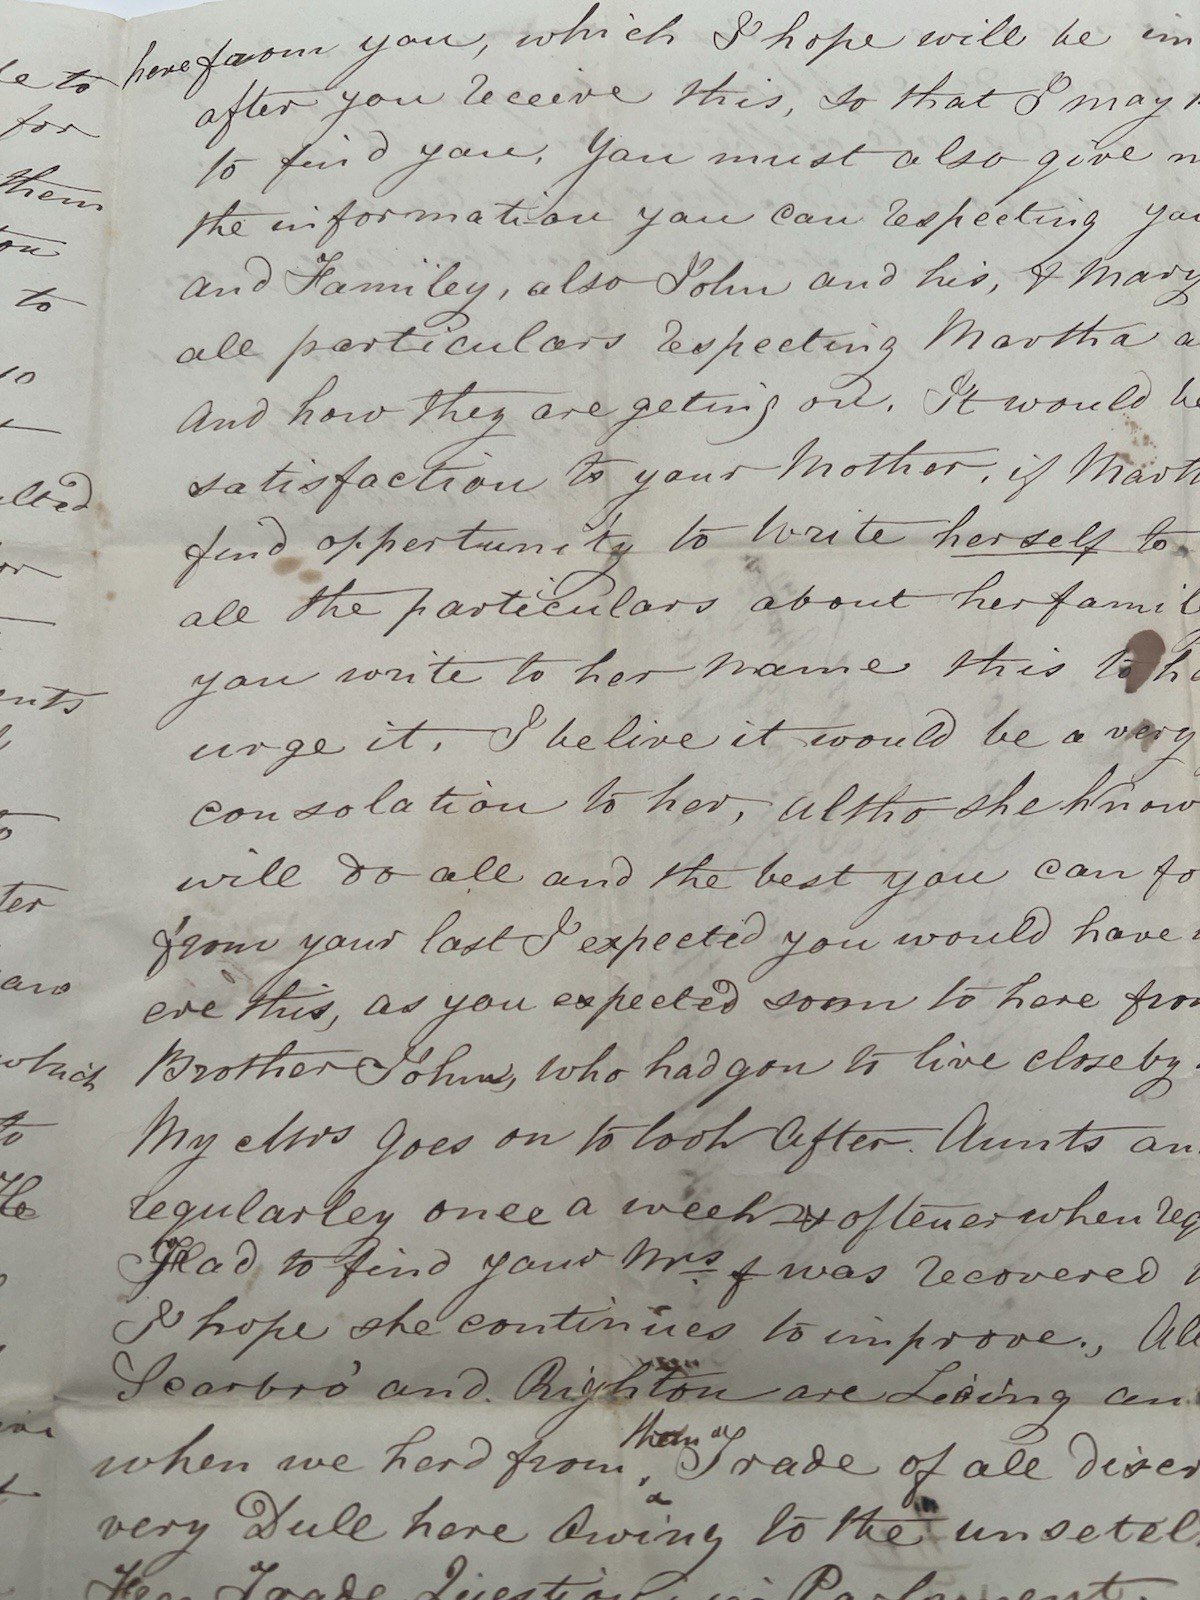 le to
for
them
to
to
which
to
He
here from you, which I hope will be im
after you receive this, so that I may
to find you. You must also give m
the information you can respecting you
and Familey, also John and his, & Mary
all particulars respecting Martha a
And how they are geting on. It would be
satisfaction to your Mother, if Mart
find oppertunity to write herself to
all the particulars about her famil
you write to her name this to he
urge it. I belive it would be a very
consolation to her, altho she know
will do all and the best you can fo
from your last I expected you would have
ere this, as you expected soon to here from
Brother John, who had gon to live close by
My Mrs goes on to look After. Aunts an
regularley once a week & oftener when req
Glad to find your Mrs. F was recovered
I hope she continues to improve., Al
Scarbro' and Righton are Living an
when we herd from them Trade of all discr
very Dule here Owing to the unsetel
Free Trade Question in Parlament.